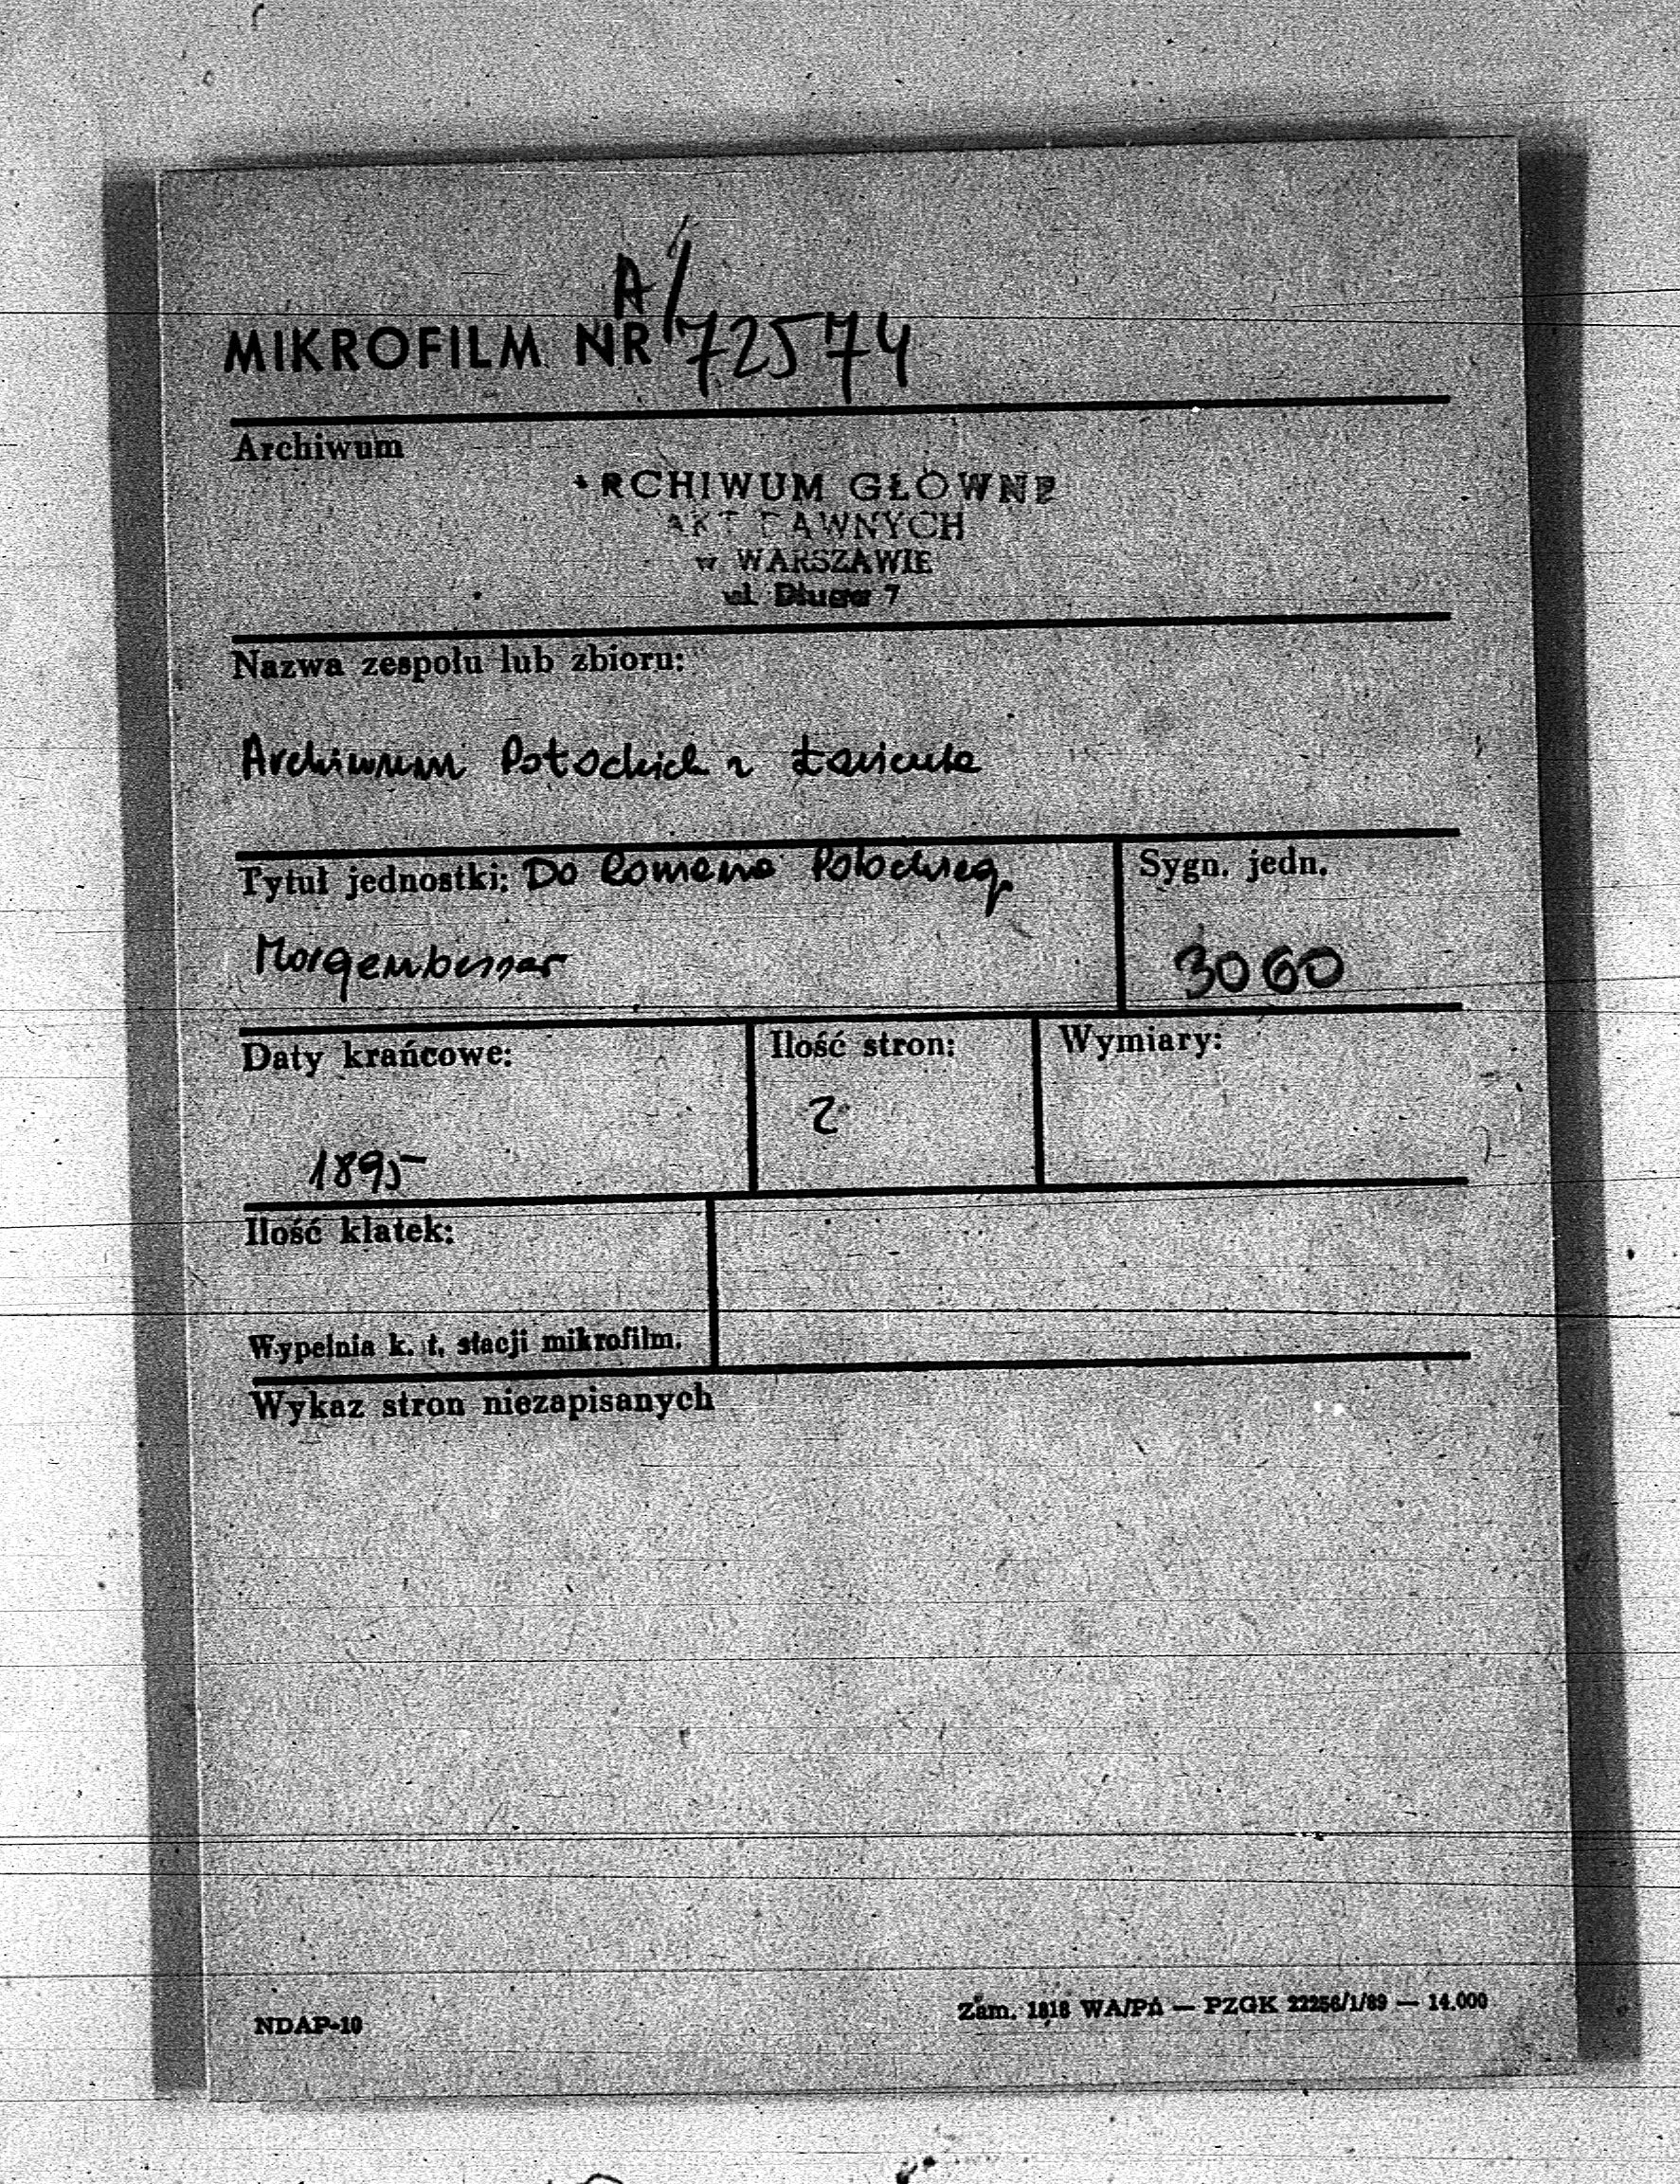 A/
MIKROFILM NR 72574
Archiwum
ARCHIWUM GŁÓWNE
AKT DAWNYCH
w WARSZAWIE
ul. Długa 7
Nazwa zespołu lub zbioru:
Archiwum Potockich z Łańcuta
Tytuł jednostki: Do Romana Potockiego
Morgenbesser
Sygn. jedn.
3060
Daty krańcowe:
1895
Ilość stron:
2
Wymiary:
Ilość klatek:
Wypełnia k. t. stacji mikrofilm.
Wykaz stron niezapisanych
NDAP-10
Zam. 1818 WA/PA — PZGK 22256/1/89 — 14.000